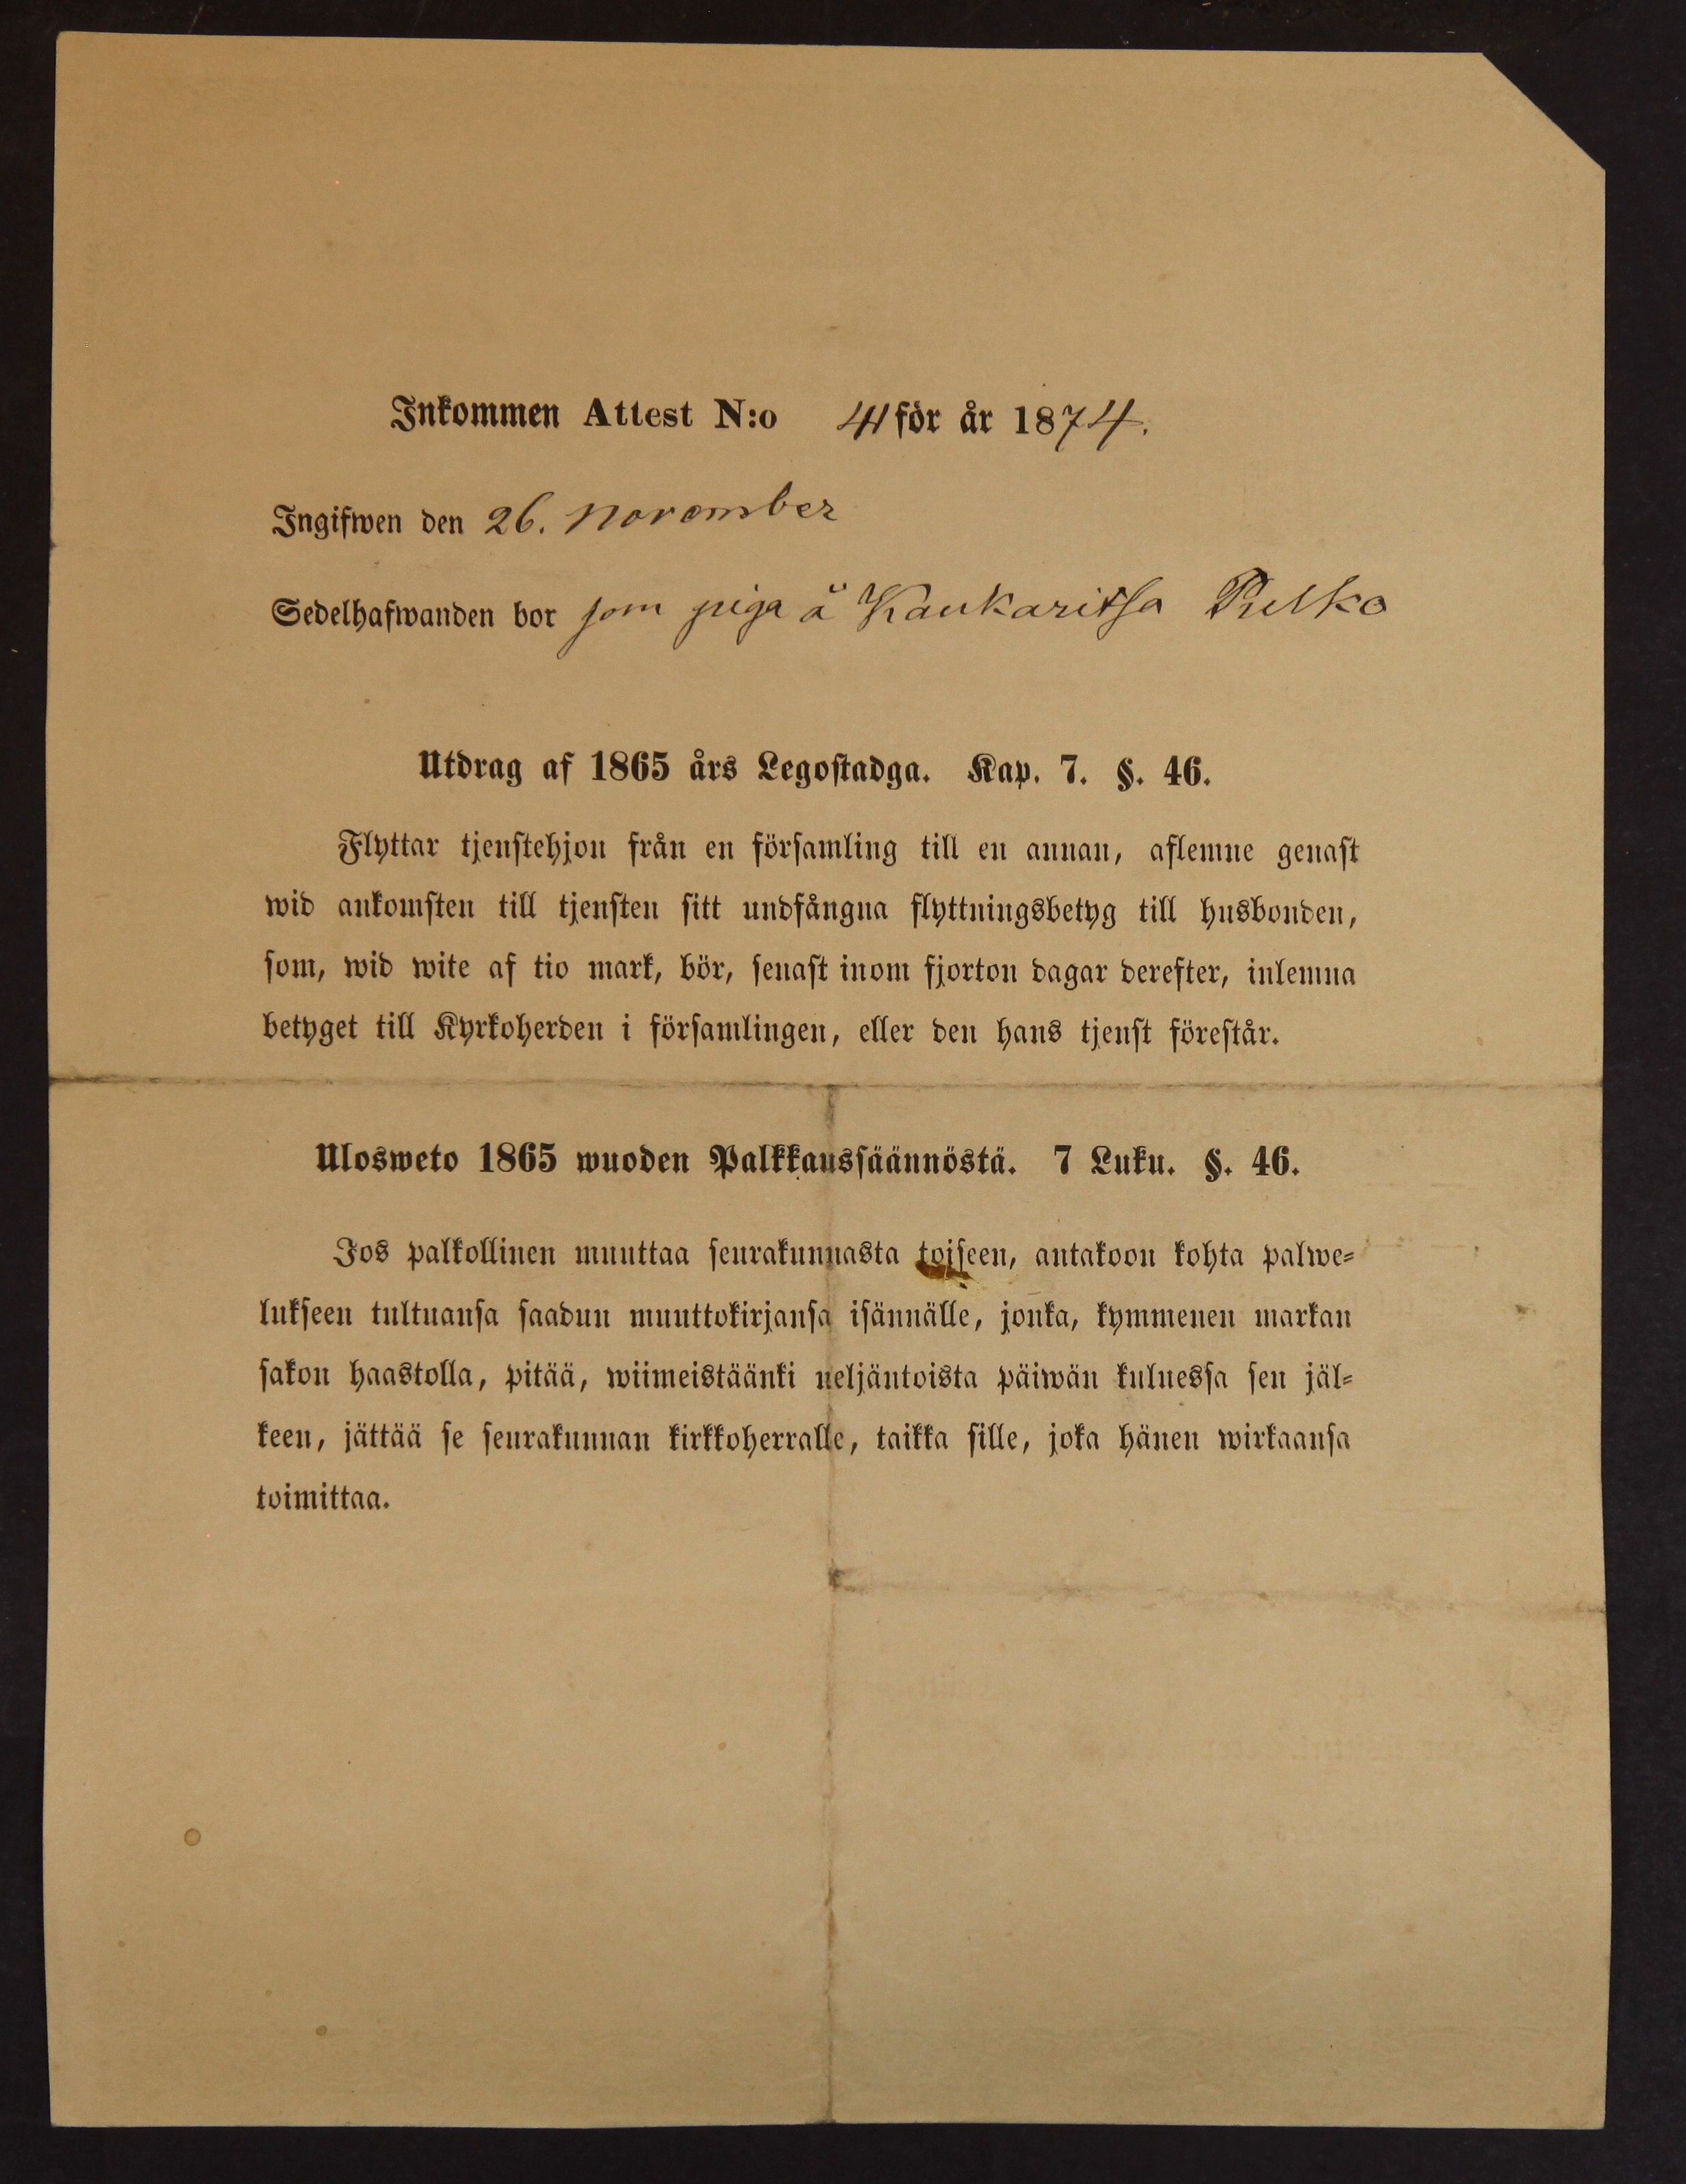 Inkommen Attest N:o 41 för år 1874.
Ingifwen den 26. november
Sedelhafwanden bor som piga å Kaukaritsa Pelko
Utdrag af 1865 års Legostadga. Kap. 7. §. 46.
Flyttar tjenstehjon från en församling till en annan, aflemne genast
wid ankomsten till tjensten sitt undfångna flyttningsbetyg till husbonden,
som, wid wite af tio mark, bör, senast inom fjorton dagar derefter, inlemna
betyget till Kyrkoherden i församlingen, eller den hans tjenst förestår.
Ulosweto 1865 wuoden Palkkaussäännöstä. 7 Luku. §. 46.
Jos palkollinen muuttaa seurakunnasta toiseen, antakoon kohta palwe-
lukseen tultuansa saadun muuttokirjansa isännälle, jonka, kymmenen markan
sakon haastolla, pitää, wiimeistäänki neljäntoista päiwän kuluessa sen jäl-
keen, jättää se seurakunnan kirkkoherralle, taikka sille, joka hänen wirkaansa
toimittaa.